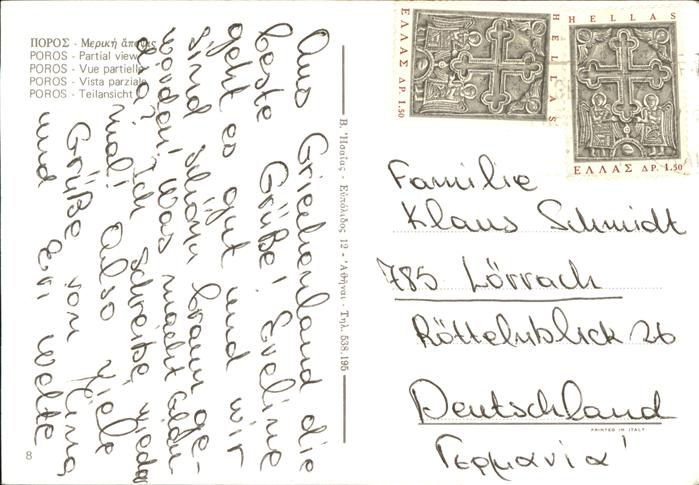 ΠΟΡΟΣ - Μερική ἄποψις
POROS - Partial view
POROS - Vue partielle
POROS - Vista parziale
POROS - Teilansicht
Aus Griechenland die
beste Grüße! Eveline
geht es gut und wir
sind schön braun ge-
worden! Was macht
Ich schreibe wieder
mal! Also Viele
Grüße von
und Evi Welte
8
Β. Ἡσαΐας - Εὐπόλιδος 12 - Ἀθῆναι - Τηλ. 538.195
HELLAS
ΕΛΛΑΣ ΔΡ. 1.50
HELLAS
ΕΛΛΑΣ ΔΡ. 1.50
Familie
Klaus Schmidt
785 Lörrach
Röttelnblick 26
Deutschland
PRINTED IN ITALY
Γερμανία